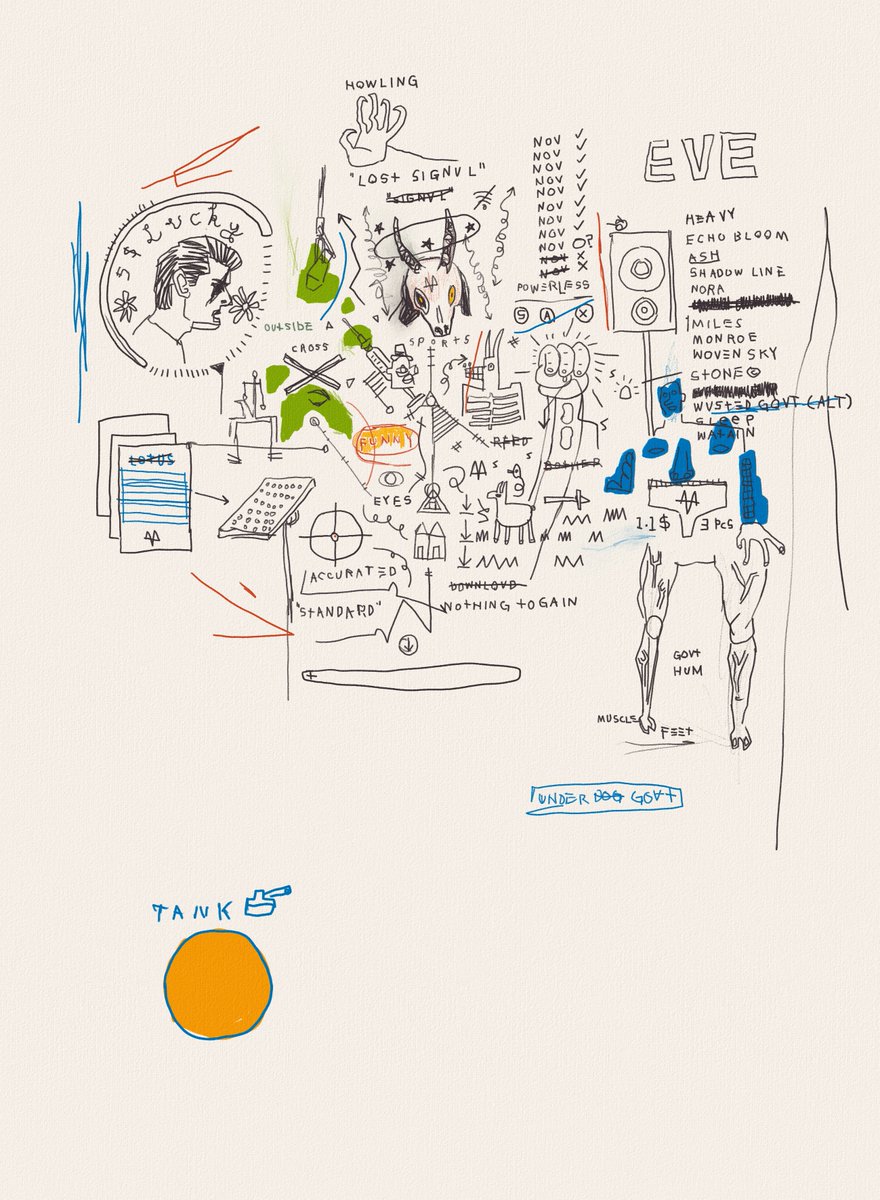 HOWLING
"LOST SIGNVL"
"SIGNVL"
NOV ✓
NOV ✓
NOV ✓
NOV ✓
NOV ✓
NOV ✓
NOV ✓
NOV ✓
NOV O?
NOV X
NOV X
POWERLESS
S A X
EVE
HEAVY
ECHO BLOOM
ASH
SHADOW LINE
NORA
MILES
MONROE
WOVEN SKY
STONE©
WVSTED GOVT (ALT)
SLEEP
WATAIN
5$ LUCKY
OUTSIDE
CROSS
SPORTS
FUNNY
EYES
LOTUS
BOTHER
S
S
S
1.1$ 3 PCS
ACCURATED
"STANDARD"
DOWNLOVD
NOTHING TO GAIN
GOVT
HUM
MUSCLE
FEET
UNDER DOG GOVT
TANK